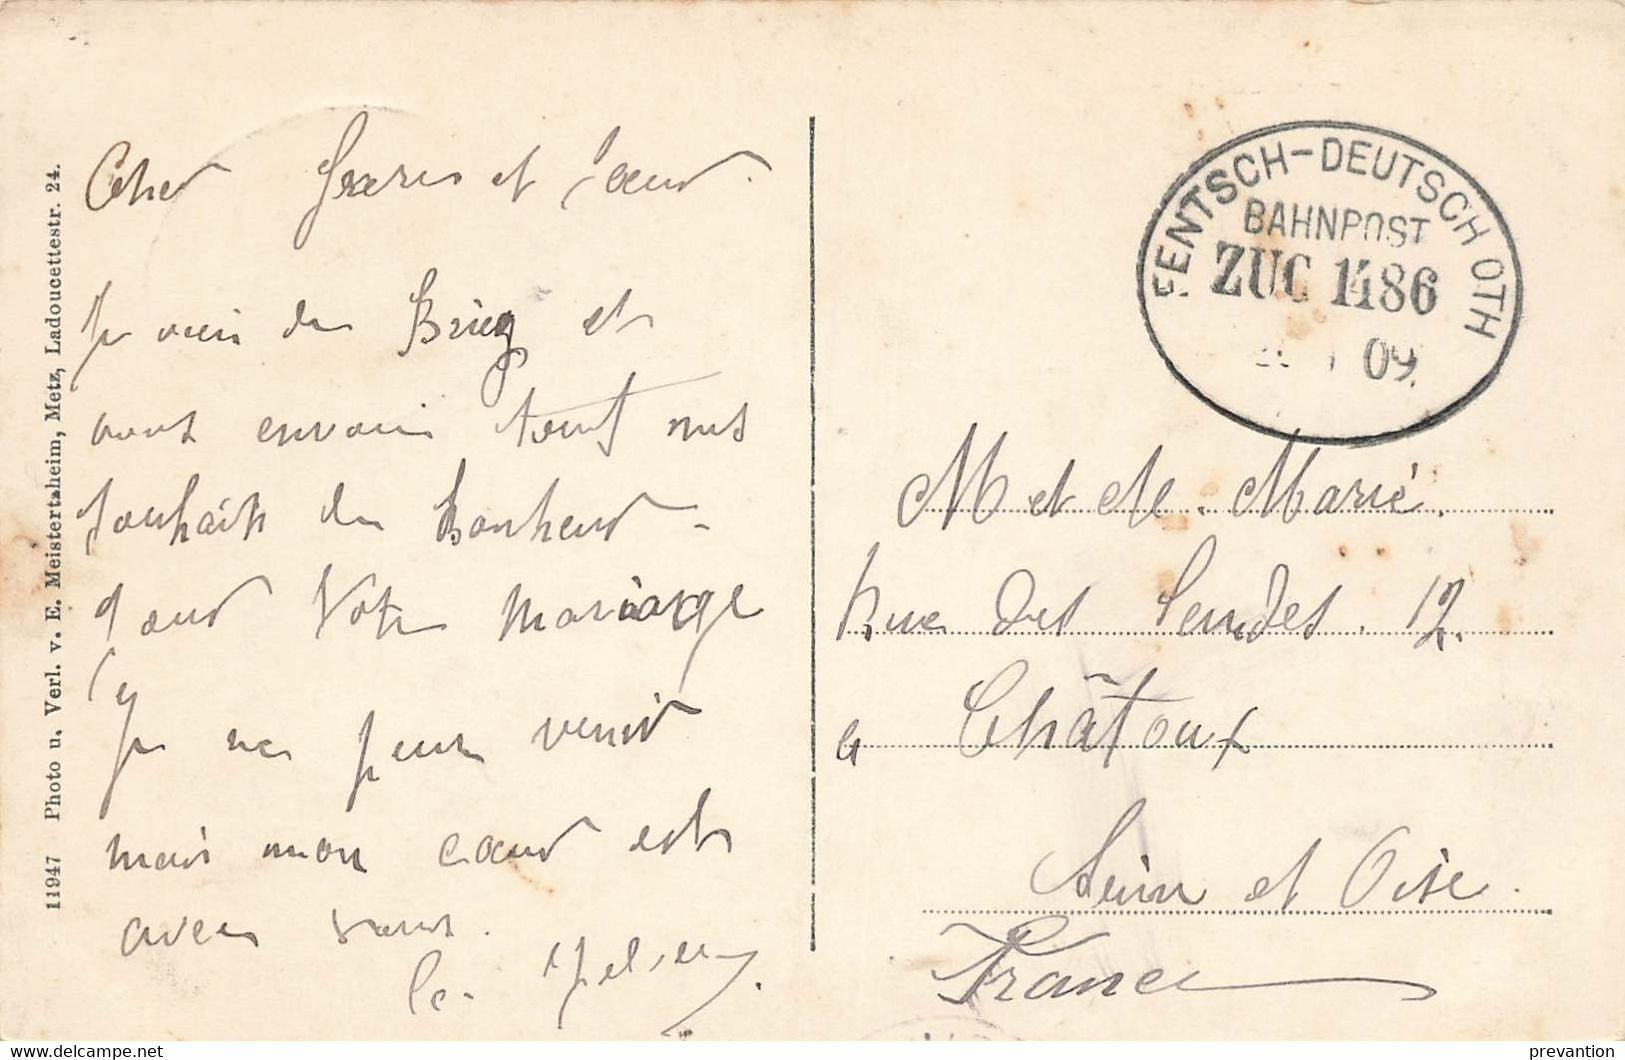 11947 Photo u. Verl. v. E. Meistertzheim, Metz, Ladoucettestr. 24.
Cher frere et
Je vien de Briey et
vous envoie tout mes
souhaits de Bonheur
pour Votre mariarge
Je ne peux venir
mais mon cœur est
avec vous.
FENTSCH-DEUTSCH OTH
BAHNPOST
ZUG 1486
09
M et Me. Marié.
Rue Des Landes. 12.
a Châtoux
Sein et Oise.
France
delcampe.net
prevantion